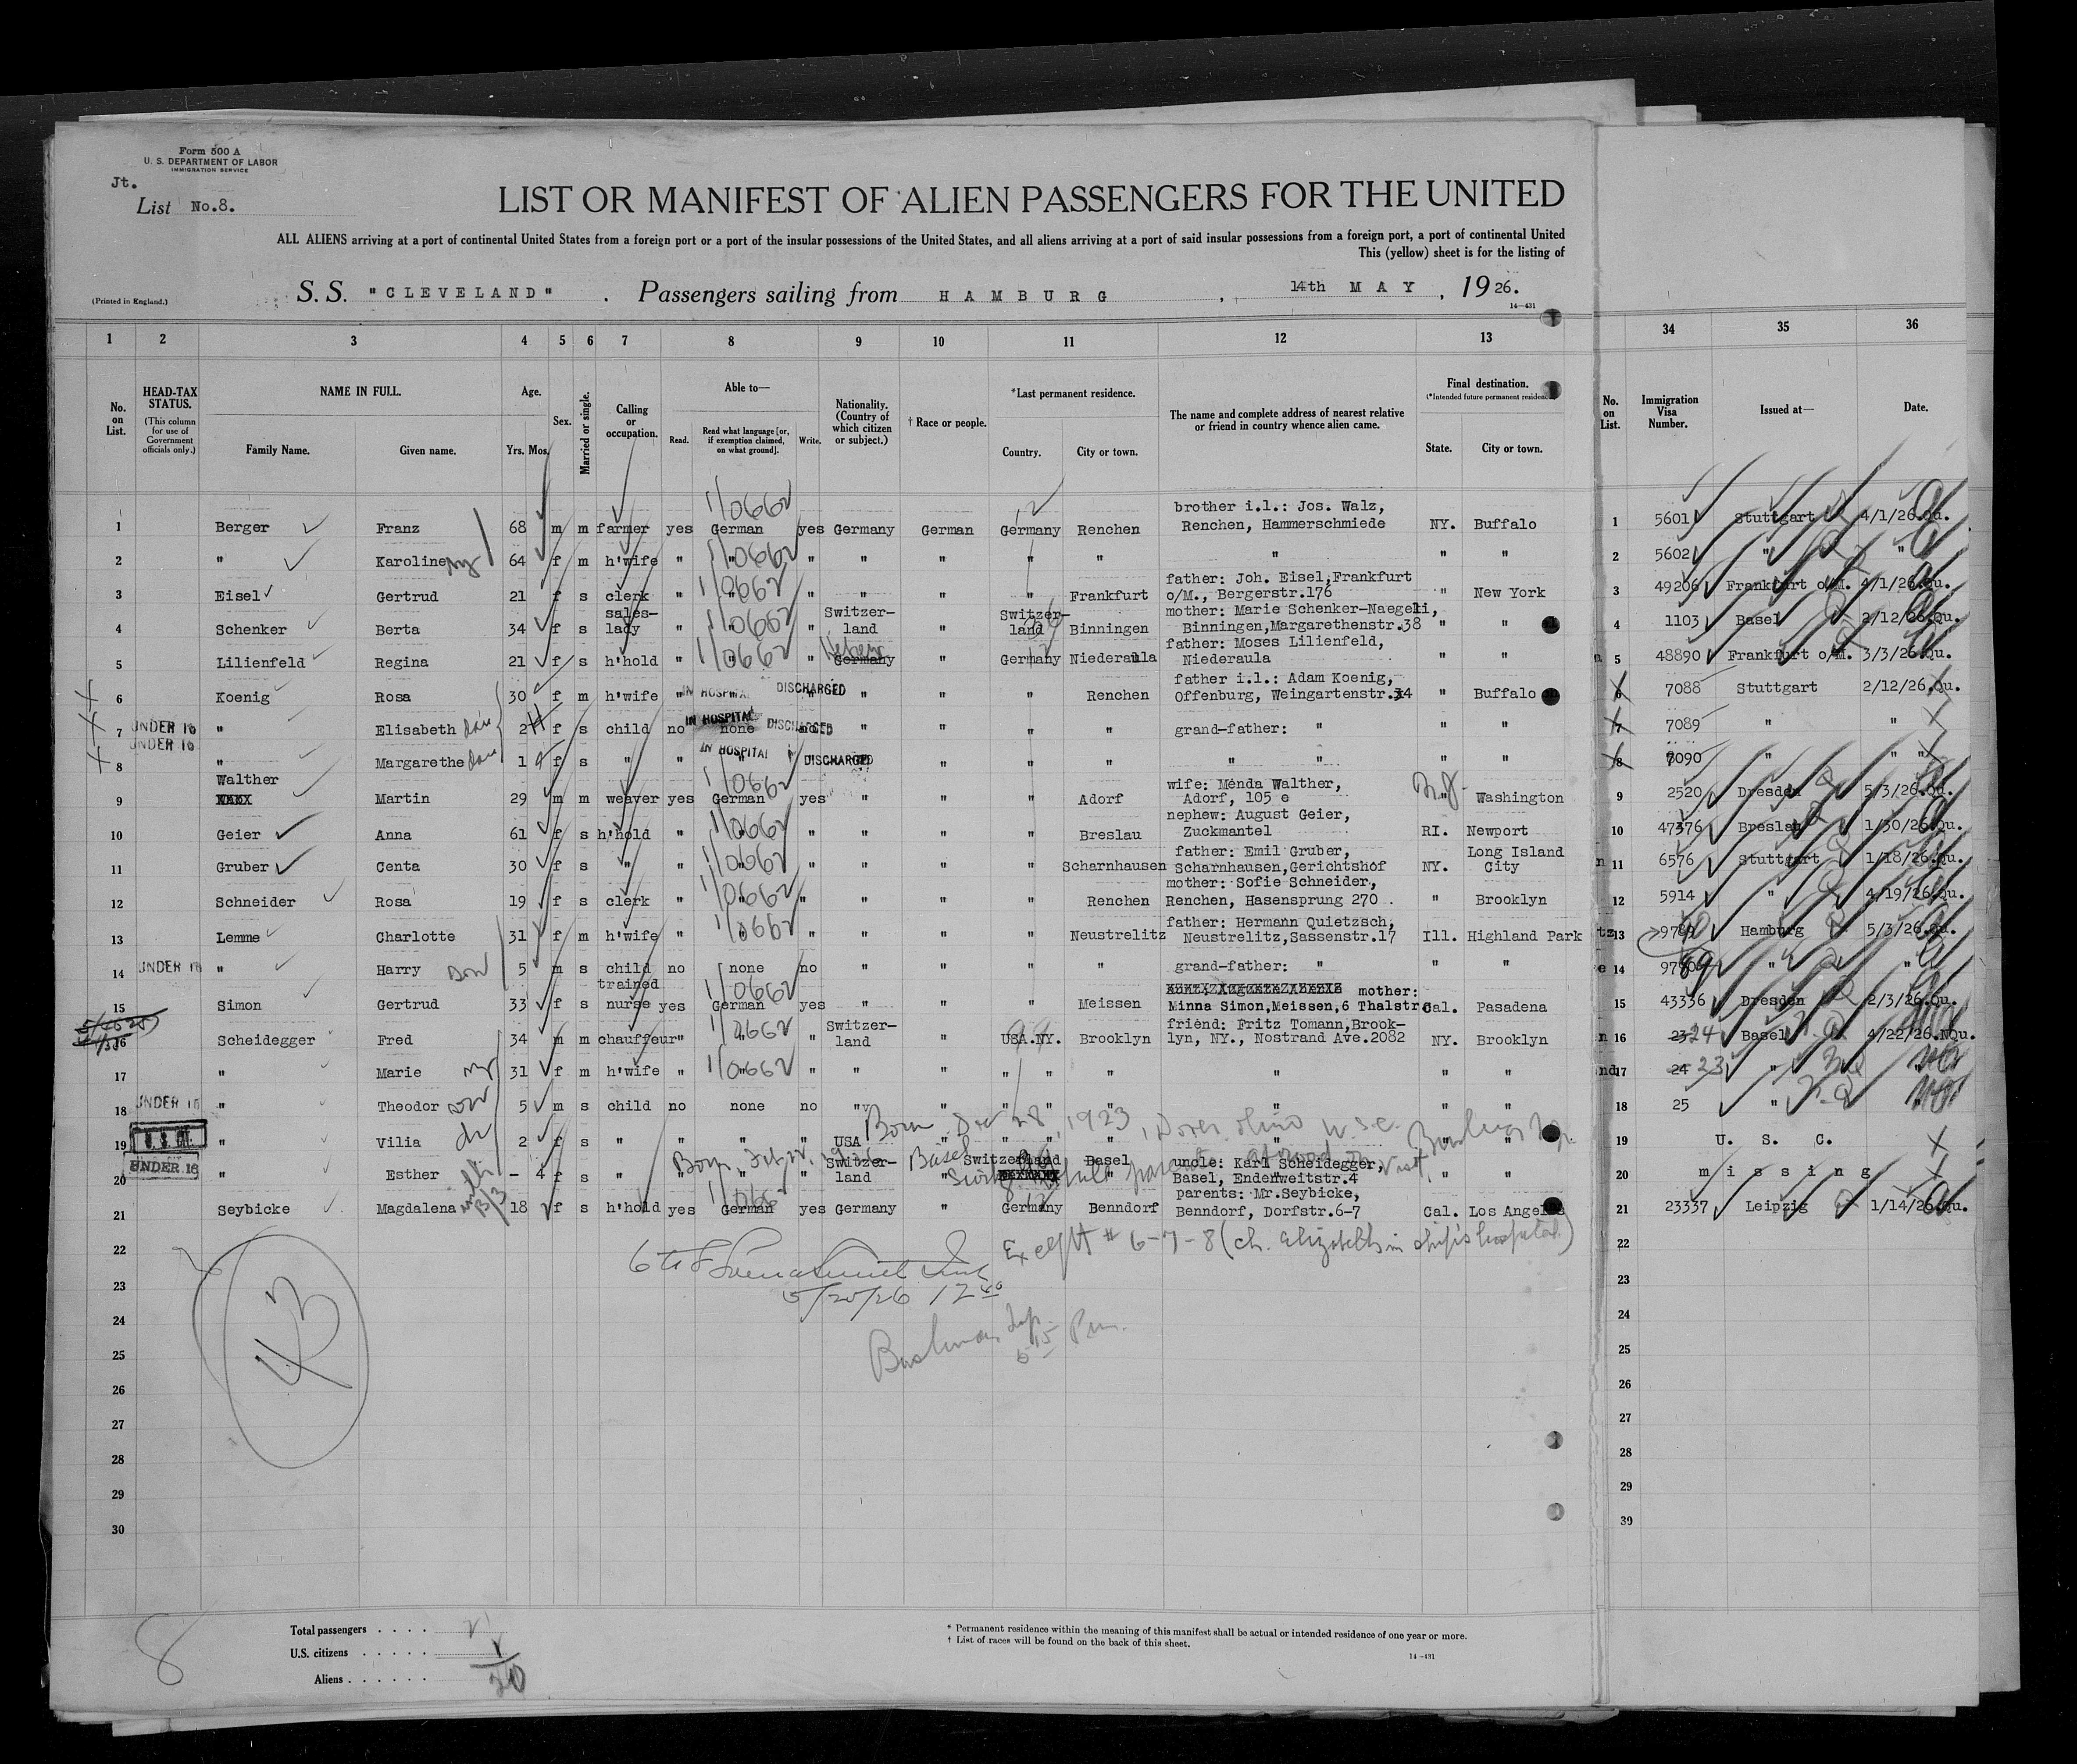 Form 500 A
U. S. DEPARTMENT OF LABOR
IMMIGRATION SERVICE
Jt.
List No.8.
LIST OR MANIFEST OF ALIEN PASSENGERS FOR THE UNITED
ALL ALIENS arriving at a port of continental United States from a foreign port or a port of the insular possessions of the United States, and all aliens arriving at a port of said insular possessions from a foreign port, a port of continental United
This (yellow) sheet is for the listing of
(Printed in England.)
S. S. "CLEVELAND" . Passengers sailing from HAMBURG , 14th MAY , 1926.
14—431
1 2 3 4 5 6 7 8 9 10 11 12 13 34 35 36
No. on List.
HEAD-TAX STATUS.
(This column for use of Government officials only.)
NAME IN FULL.
Family Name. Given name.
Age.
Yrs. Mos.
Sex.
Married or single.
Calling or occupation.
Able to—
Read. Read what language [or, if exemption claimed, on what ground]. Write.
Nationality. (Country of which citizen or subject.)
† Race or people.
*Last permanent residence.
Country. City or town.
The name and complete address of nearest relative or friend in country whence alien came.
Final destination.
(*Intended future permanent residence.)
State. City or town.
No. on List.
Immigration Visa Number.
Issued at—
Date.
1 Berger Franz 68 m m farmer yes German yes Germany German Germany Renchen brother i.l.: Jos. Walz, Renchen, Hammerschmiede NY. Buffalo 1 5601 Stuttgart 4/1/26.Qu.
2 " Karoline 64 f m h'wife " " " " " " " " " " 2 5602 " "
3 Eisel Gertrud 21 f s clerk " " " " " " Frankfurt father: Joh. Eisel,Frankfurt o/M., Bergerstr.176 " New York 3 49206 Frankfurt o/M. 4/1/26.Qu.
4 Schenker Berta 34 f s sales-lady " " " Switzer-land " Switzer-land Binningen mother: Marie Schenker-Naegeli, Binningen,Margarethenstr.38 " " 4 1103 Basel 2/12/26.Qu.
5 Lilienfeld Regina 21 f s h'hold " " " Germany " Germany Niederaula father: Moses Lilienfeld, Niederaula " " 5 48890 Frankfurt o/M. 3/3/26.Qu.
6 Koenig Rosa 30 f m h'wife " IN HOSPITAL DISCHARGED " " " Renchen father i.l.: Adam Koenig, Offenburg, Weingartenstr.34 " Buffalo 6 7088 Stuttgart 2/12/26.Qu.
7 UNDER 16 " Elisabeth 2 f s child no none no IN HOSPITAL DISCHARGED " " " " grand-father: " " " 7 7089 " "
8 UNDER 16 " Margarethe 1 f s " " " IN HOSPITAL DISCHARGED " " " " " " " " 8 7090 " "
9 Walther Martin 29 m m weaver yes German yes " " " Adorf wife: Menda Walther, Adorf, 105 e " Washington 9 2520 Dresden 5/3/26.Qu.
10 Geier Anna 61 f s h'hold " " " " " " Breslau nephew: August Geier, Zuckmantel RI. Newport 10 47376 Breslau 1/30/26.Qu.
11 Gruber Centa 30 f s " " " " " " " Scharnhausen father: Emil Gruber, Scharnhausen,Gerichtshof NY. Long Island City 11 6576 Stuttgart 1/18/26.Qu.
12 Schneider Rosa 19 f s clerk " " " " " " Renchen mother: Sofie Schneider, Renchen, Hasensprung 270 " Brooklyn 12 5914 " 4/19/26.Qu.
13 Lemme Charlotte 31 f m h'wife " " " " " " Neustrelitz father: Hermann Quietzsch, Neustrelitz,Sassenstr.17 Ill. Highland Park 13 Hamburg 5/3/26.Qu.
14 UNDER 16 " Harry son 5 m s child no none no " " " " grand-father: " " " 14 " "
15 Simon Gertrud 33 f s trained nurse yes German yes " " " Meissen mother: Minna Simon,Meissen,6 Thalstr. Cal. Pasadena 15 43336 Dresden 2/3/26.Qu.
16 Scheidegger Fred 34 m m chauffeur " " " Switzer-land " USA.NY. Brooklyn friend: Fritz Tomann,Brook-lyn, NY., Nostrand Ave.2082 NY. Brooklyn 16 2324 Basel 4/22/26.NQu.
17 " Marie 31 f m h'wife " " " " " " " " " " " 17 24 23 " "
18 UNDER 16 " Theodor son 5 m s child no none no " " " " " " " " 18 25 " "
19 " Vilia 2 f s " " " " USA " " " " " " " 19 U. S. C.
Born Dec 28, 1923
20 UNDER 16 " Esther - 4 f s " " " " Switzer-land " Switzerland Basel uncle: Karl Scheidegger, Basel, Endenweitstr.4 " " 20 missing
21 Seybicke Magdalena 18 f s h'hold yes German yes Germany " Germany Benndorf parents: Mr.Seybicke, Benndorf, Dorfstr.6-7 Cal. Los Angeles 21 23337 Leipzig 1/14/26.Qu.
22 Except # 6-7-8 (ch. Elizabeth in ship's hospital) 22
23 5/25/26 23
24 24
25 25
26 26
27 27
28 28
29 29
30 30
43
8
Total passengers . . . . 21
U.S. citizens . . . . . 1
Aliens . . . . . . 20
* Permanent residence within the meaning of this manifest shall be actual or intended residence of one year or more.
† List of races will be found on the back of this sheet.
14—431